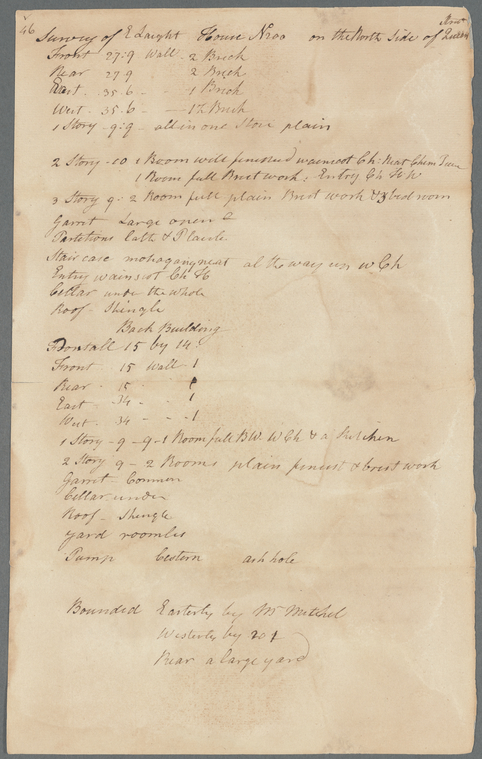 46
Survey of E Laight House No on the North Side of Queen
Front 27:9 Wall 2 Brick
Rear 27 9 2 Brick
East 35.6 - - 1 Brick
West 35.6 - 1½ Brick
1 Story - 9:9 - all in one Store plain
2 Story - 10 1 Room well finished wainscot Ch: Neat Chim
1 Room full Brest work: Entry Ch H W
3 Story 9: 2 Room full plain Brest work & 3 bed room
Garrit Large open 2
Partitions Lath & Plaiste
Stair case mohagany neat al the way up w Ch
Entry wainscot Ch H
Cellar under the whole
Roof - Shingle
Back Building
15 by 14:
Front 15 Wall 1
Rear - 15 - 1
East - 34 - - 1
West - 34 - - 1
1 Story - 9 - 9 - 1 Room full B W. W Ch & a Kitchen
2 Story 9 - 2 Rooms plain finist & brest work
Garrit Common
Cellar under
Roof - Shingle
Yard roomles
Pump Cestern ash hole
Bounded Easterly by Mr Mitchel
Westerly by 201
Rear a large yard